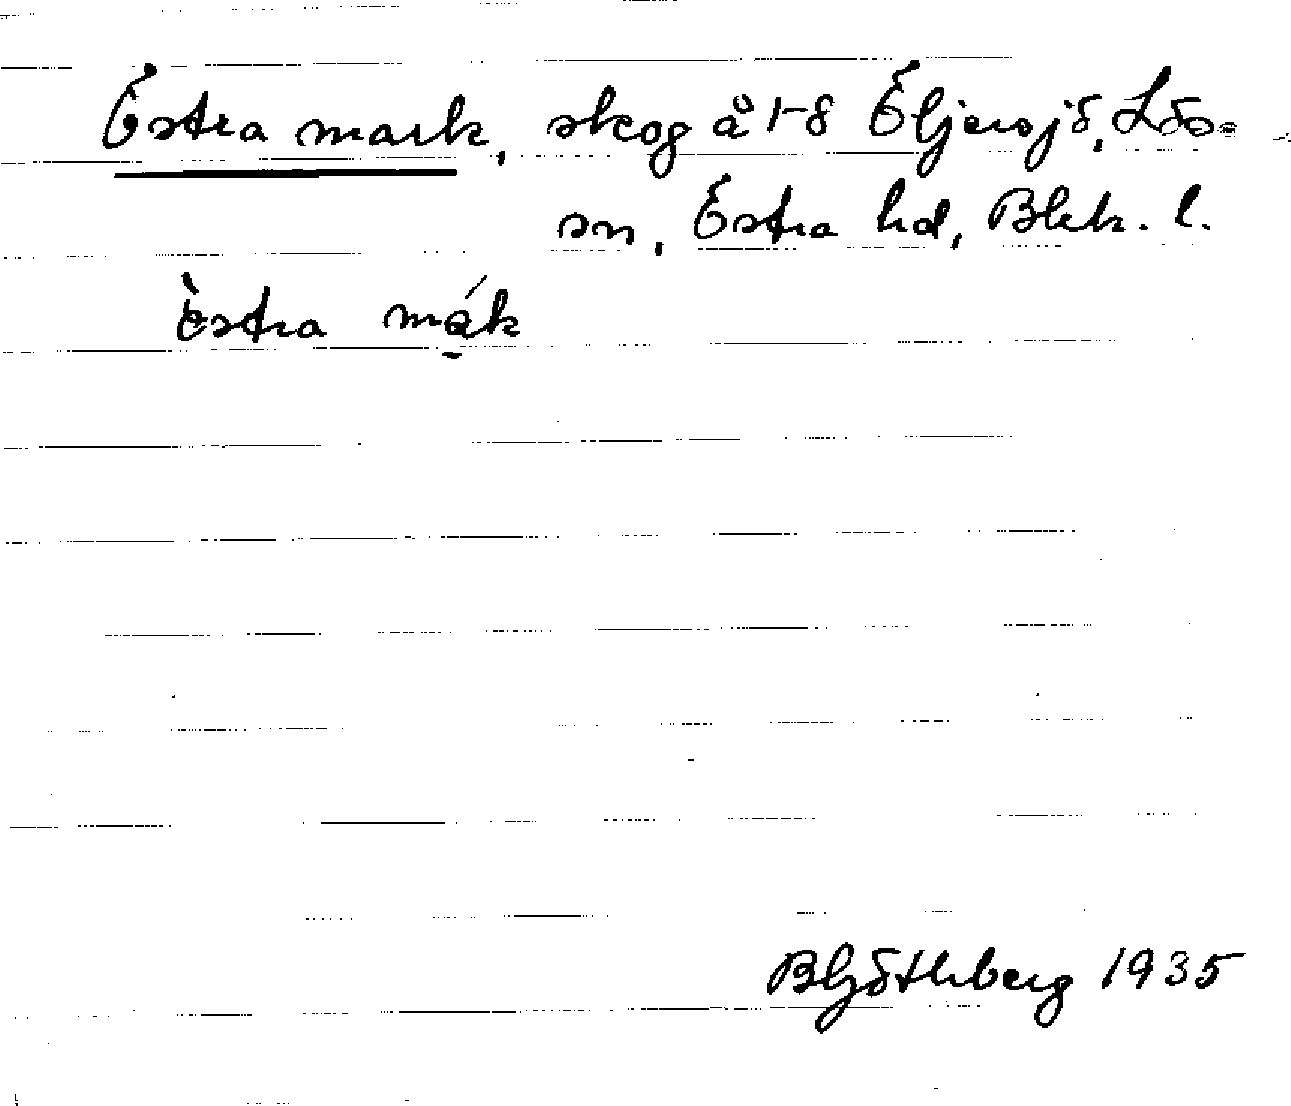 Östra mark, skog å 1-8 Öljersjö, Lös-
sn, Östra hd, Blek. l.
östra mák
B Göthberg 1935